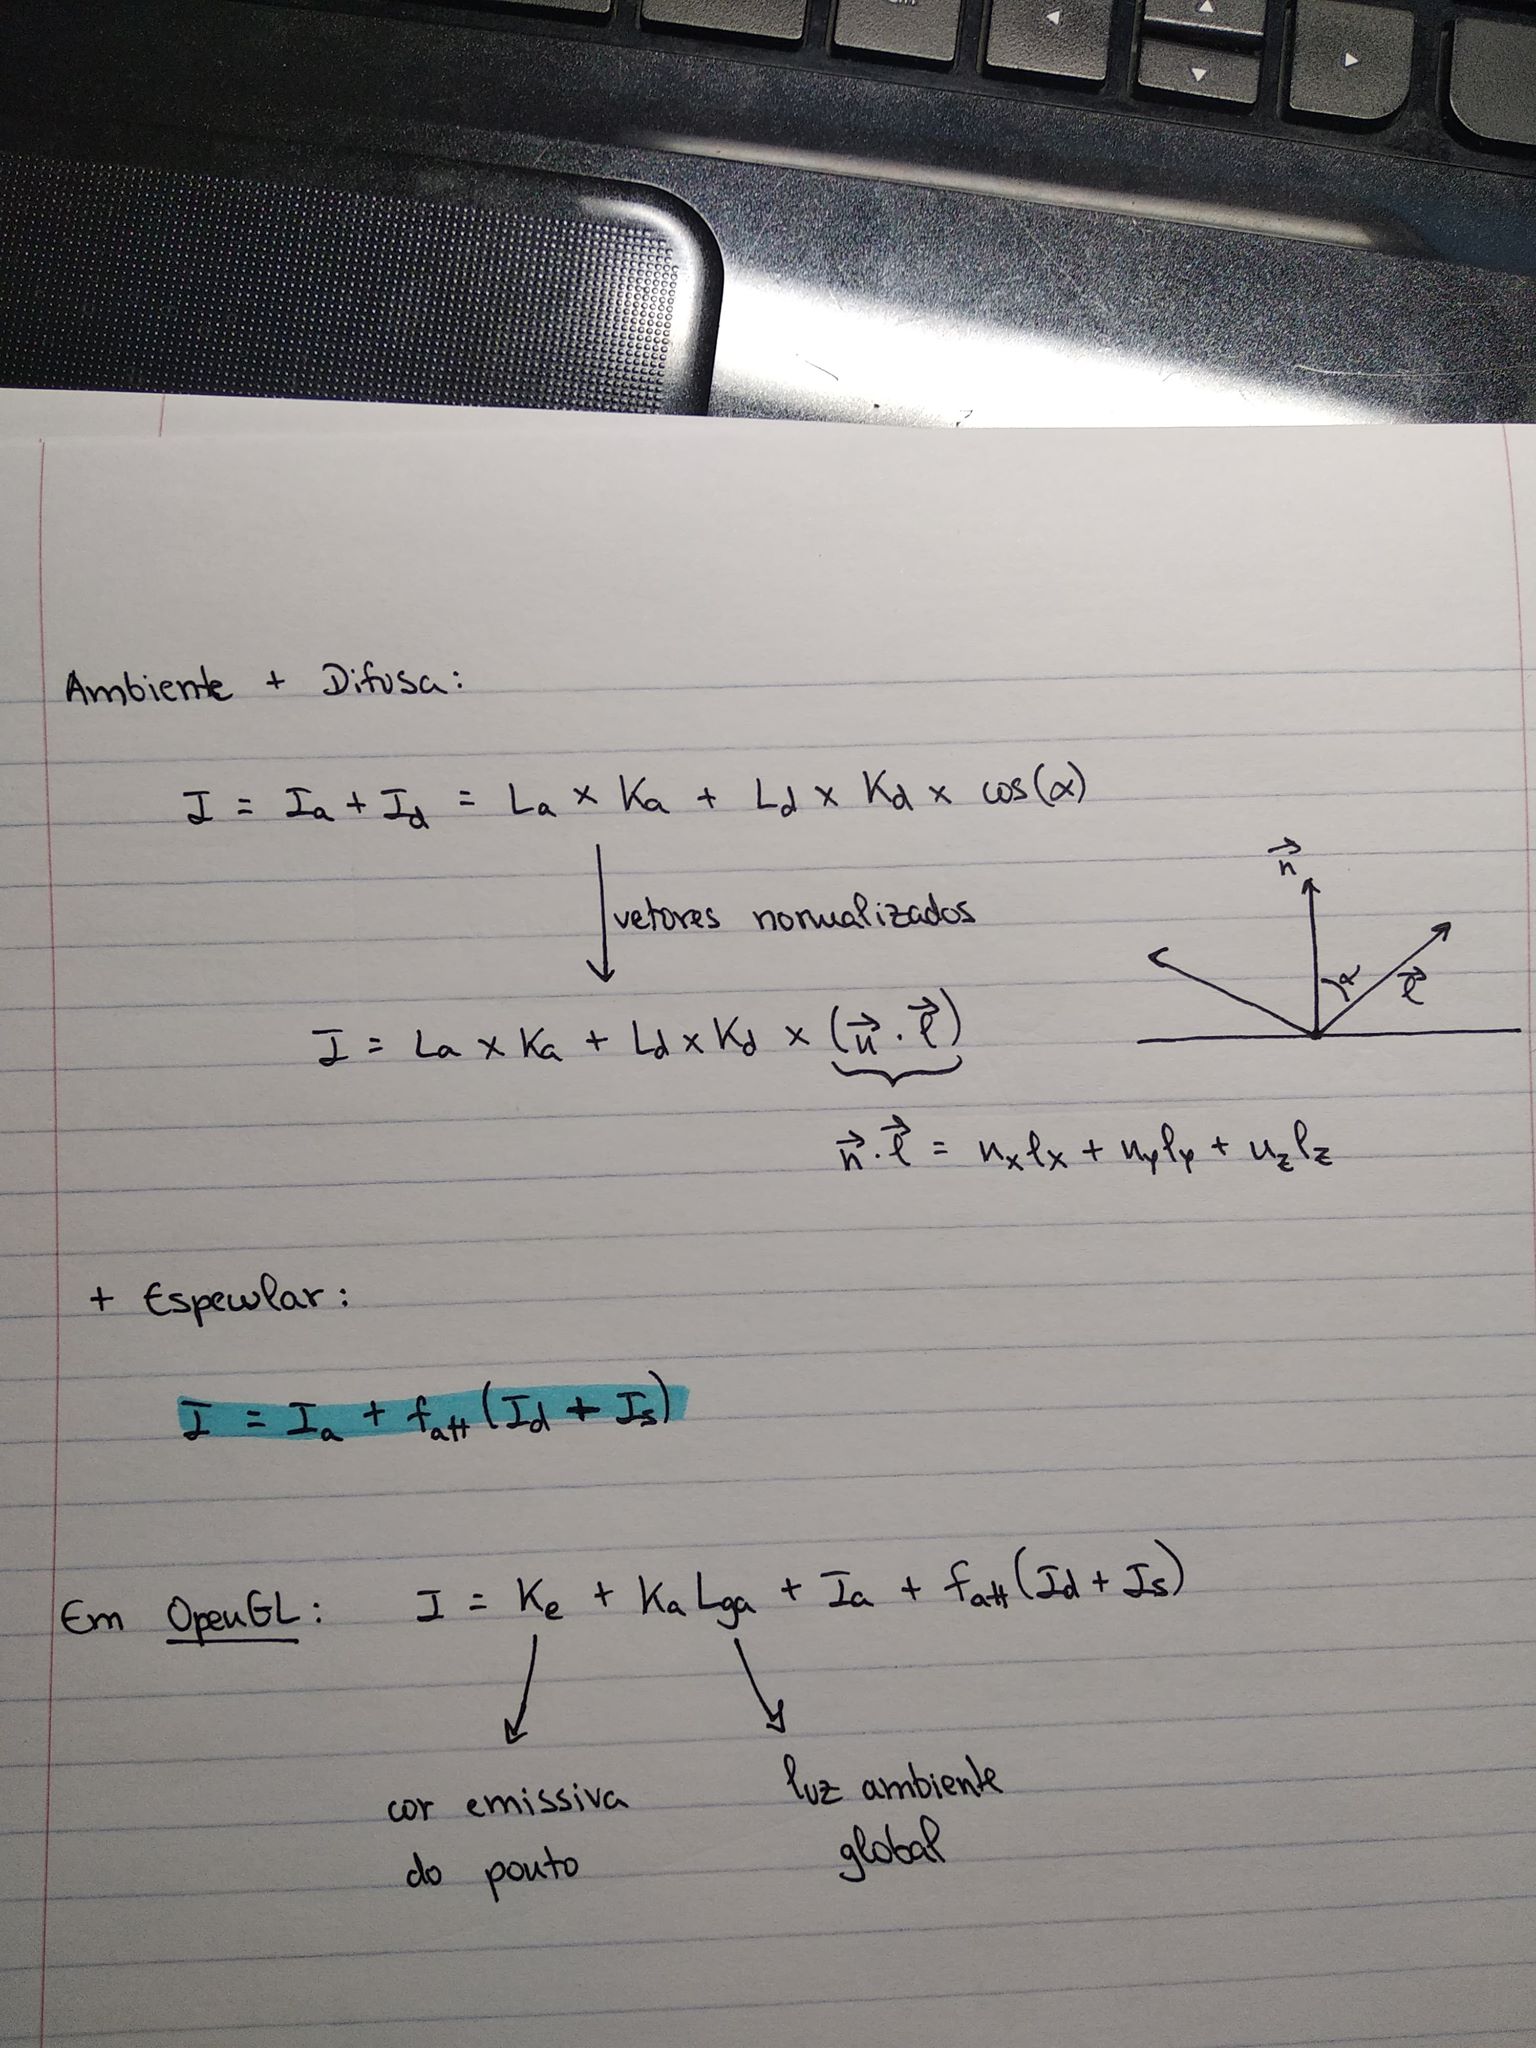 Ambiente + Difusa:
I = Ia + Id = La × Ka + Ld × Kd × cos(α)
vetores normalizados
n⃗
α
l⃗
I = La × Ka + Ld × Kd × (n⃗ . l⃗)
n⃗ . l⃗ = nxlx + nyly + nzlz
+ Especular:
I = Ia + fatt (Id + Is)
Em OpenGL: I = Ke + Ka Lga + Ia + fatt (Id + Is)
cor emissiva
do ponto
luz ambiente
global